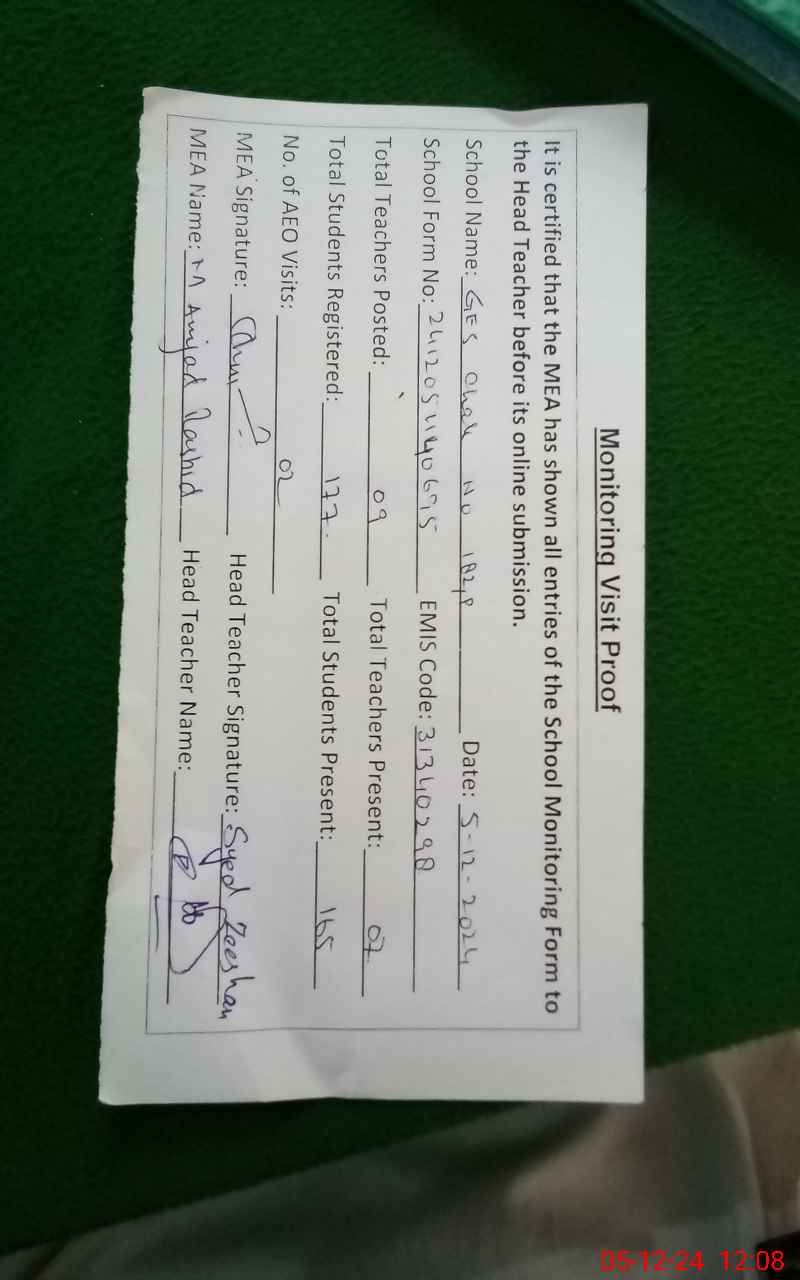 Monitoring Visit Proof
It is certified that the MEA has shown all entries of the School Monitoring Form to
the Head Teacher before its online submission.
School Name: GES Chak No 182/P Date: 5-12-2024
School Form No: EMIS Code: 31340298
Total Teachers Posted: 09 Total Teachers Present: 07
Total Students Registered: 177 Total Students Present: 165
No. of AEO Visits: 02
MEA Signature: Head Teacher Signature: Syed Zeeshan
MEA Name: M Amjad Rashid Head Teacher Name:
05-12-24 12:08